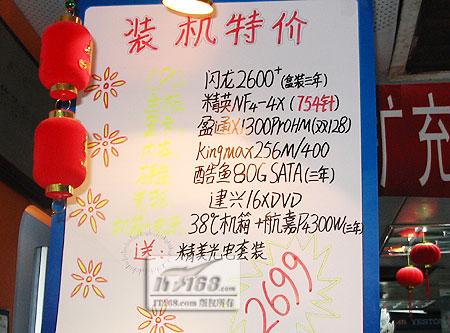 装机特价
闪龙2600+(盒装三年)
精英NF4-4X(754针)
盈通X1300ProHM(双128)
Kingmax256M/400
酷鱼80GSATA(三年)
建兴16XDVD
38℃机箱+航嘉P4300W(三年)
送：精美光电套装
2699
IT168.com
IT168.com 版权所有
扩充